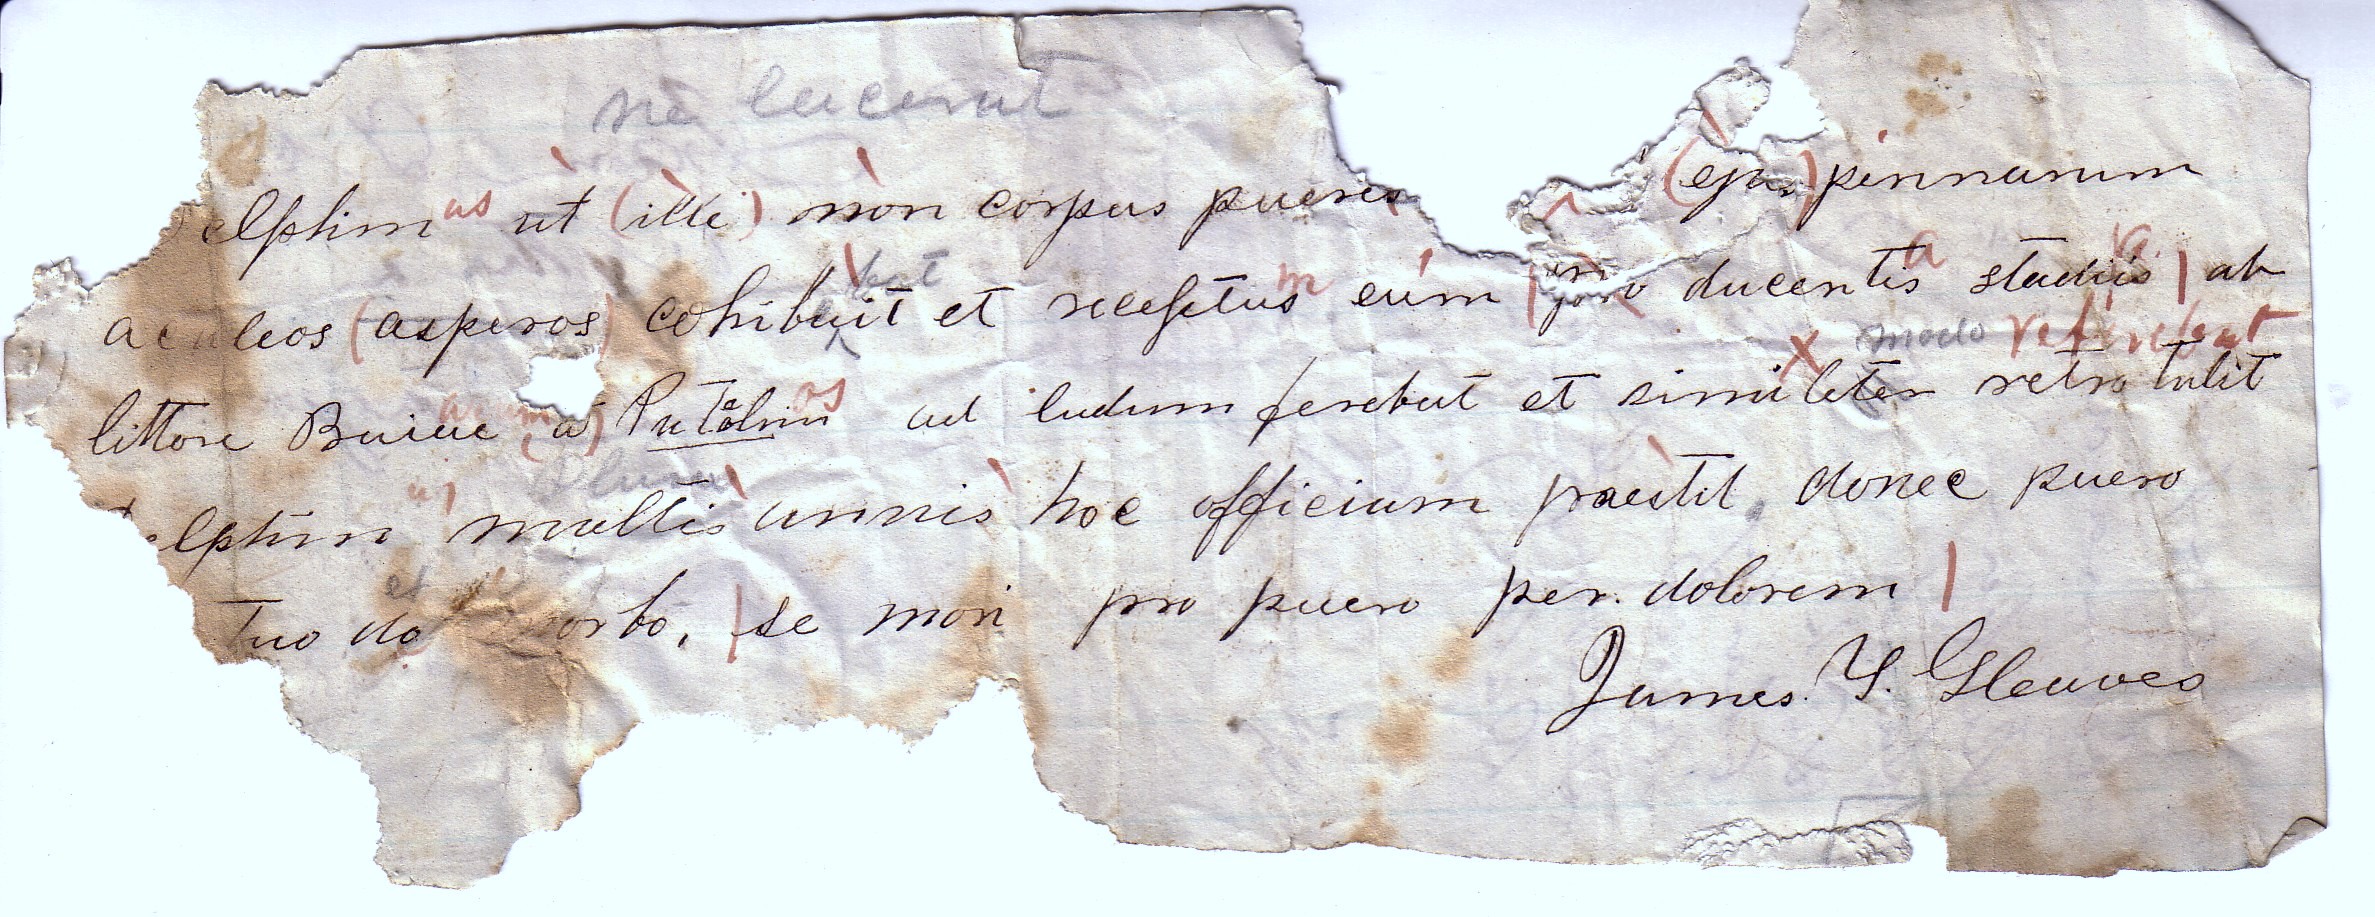 ne lacerat
elphin us ut (ille) non corpus pueri (ejus) pinnarum
aculeos (asperos) cohibuit bat et receptus m eum pro ducentis a stadiis a ab
modo referebat
littore Baiae arum (a) Puteolin os ad ludum ferebat et similiter retro tulit
elphin us multis annis hoc officium praestit donec puero
et
tuo do morbo, se mori pro puero per dolorem
James. Y. Gleaves